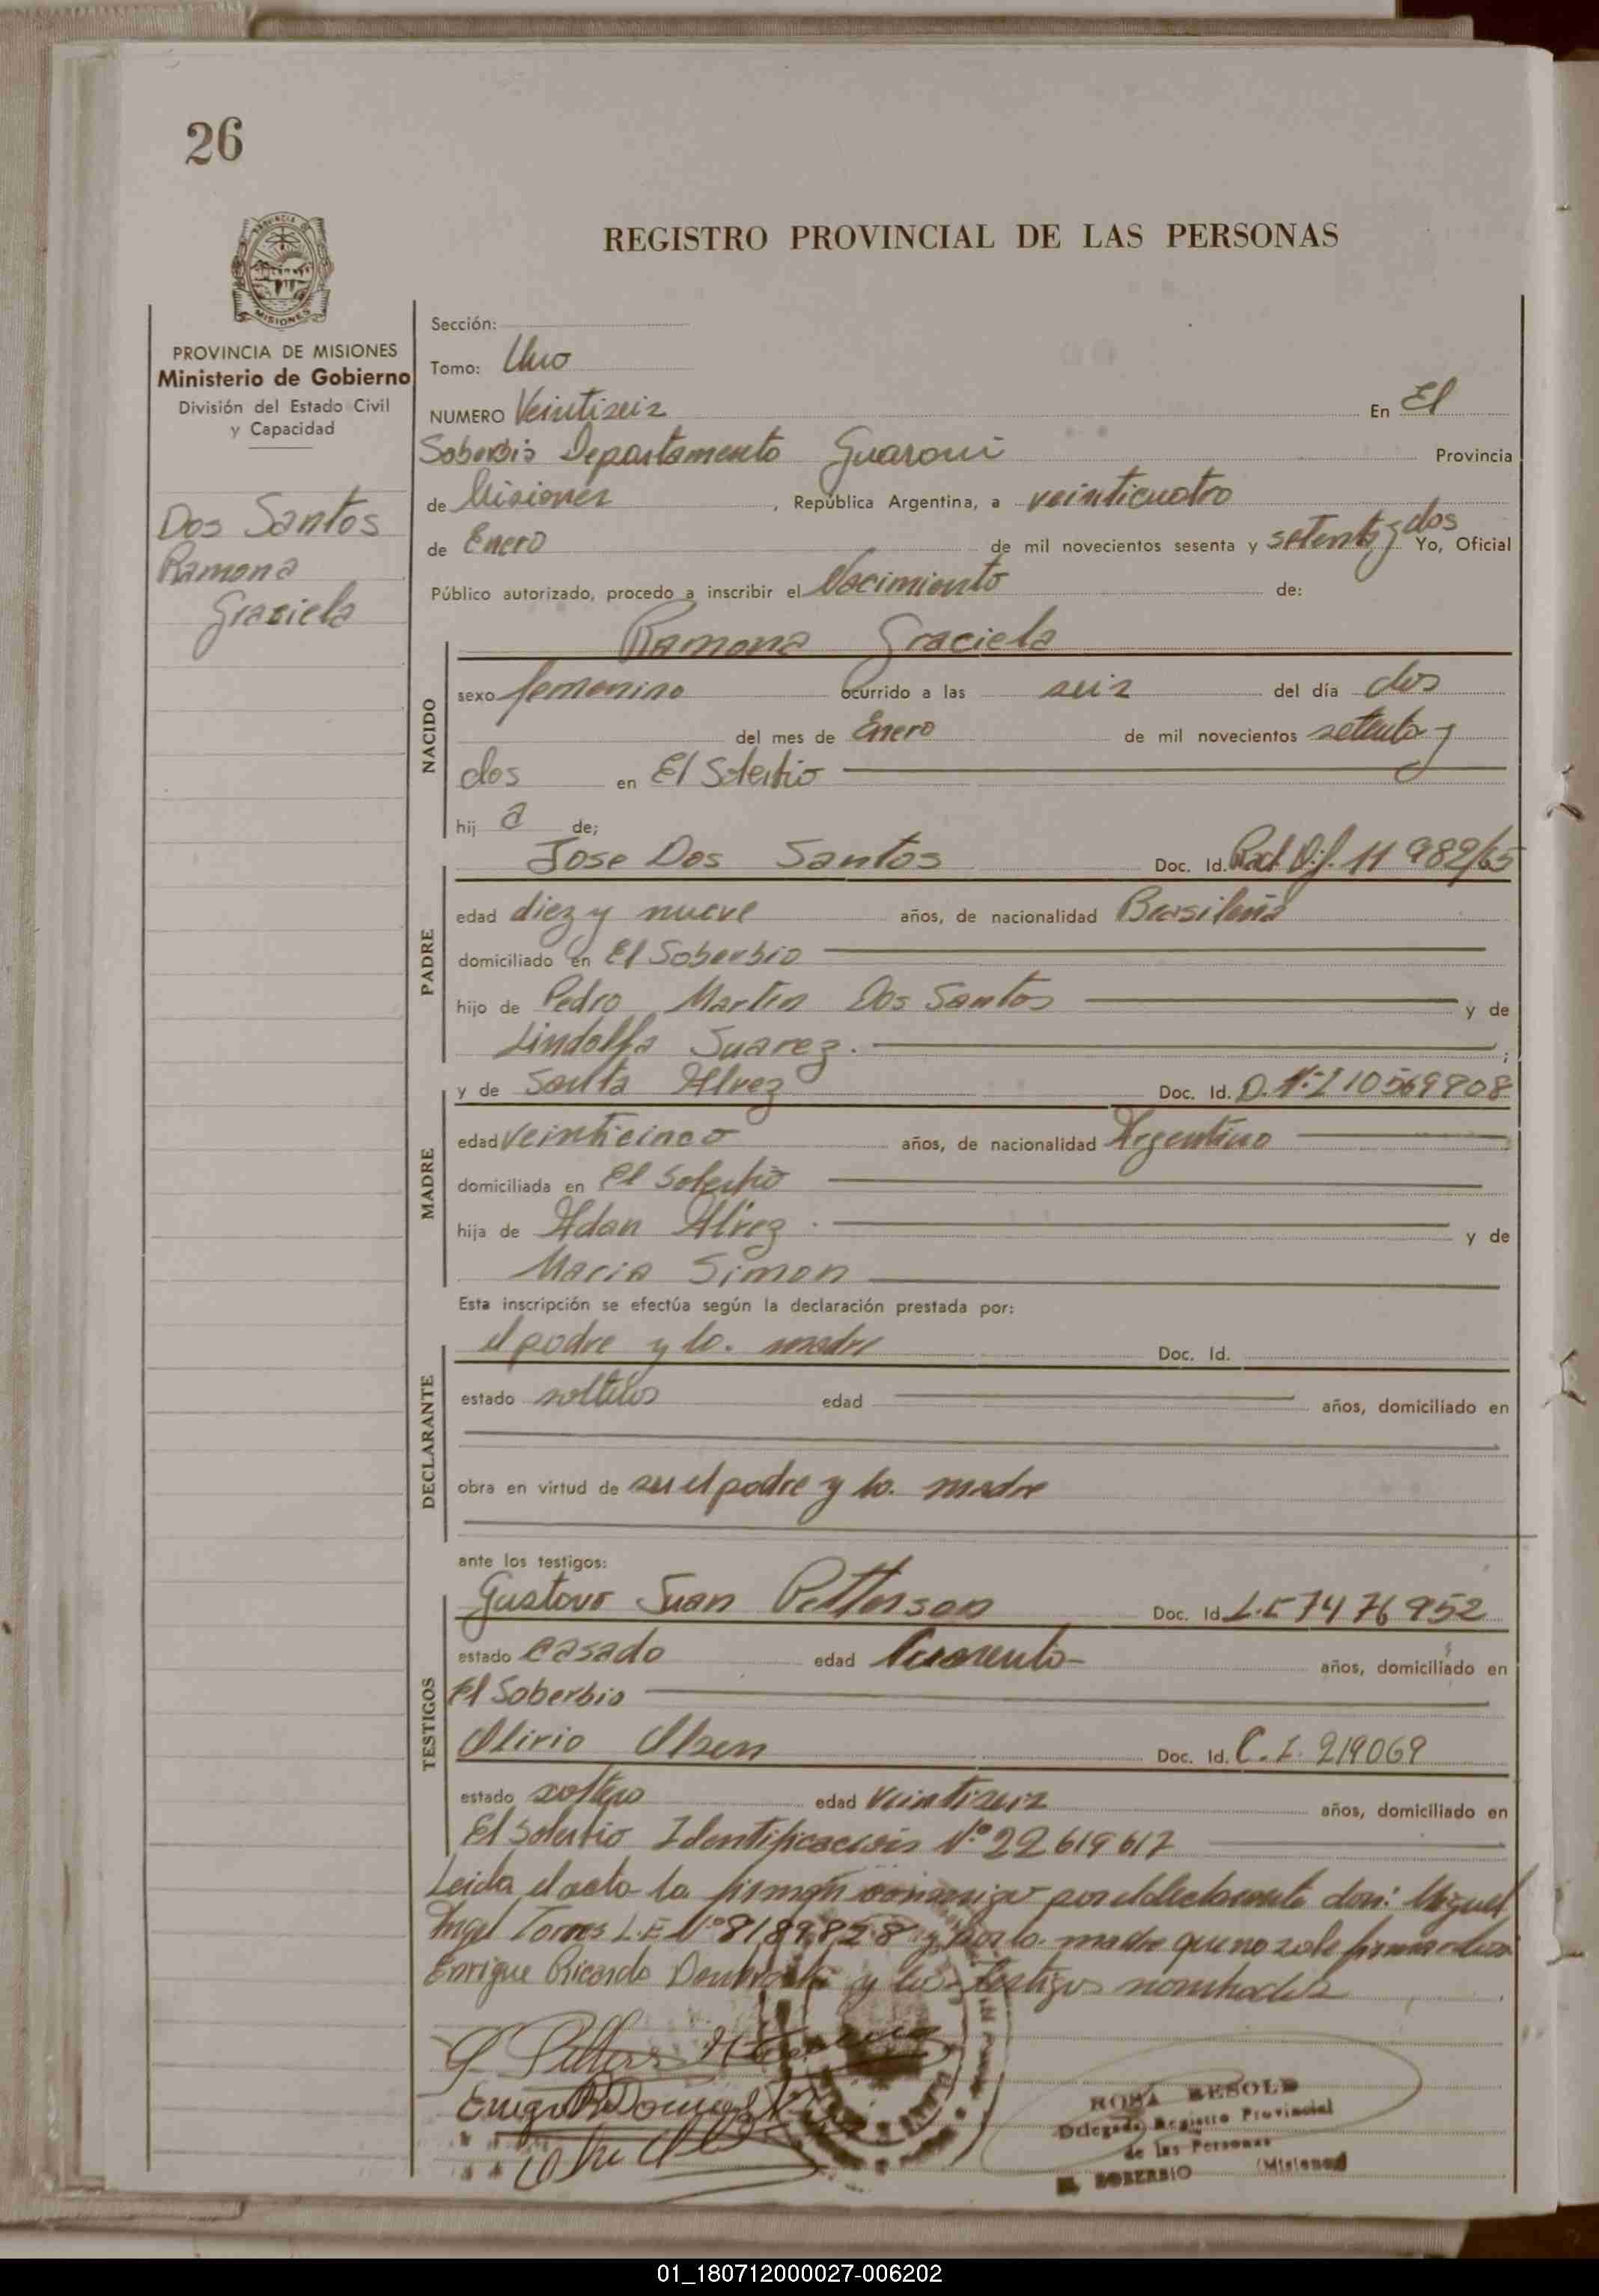 26
REGISTRO PROVINCIAL DE LAS PERSONAS
PROVINCIA DE MISIONES
Ministerio de Gobierno
División del Estado Civil
y Capacidad
Dos Santos
Ramona
Graciela
Sección:
Tomo: Uno
NUMERO Veintiseis En El
Soberbio Departamento Guarani Provincia
de Misiones, República Argentina, a veinticuatro
de Enero de mil novecientos sesenta y setenta y dos Yo, Oficial
Público autorizado, procedo a inscribir el Nacimiento de:
NACIDO
Ramona Graciela
sexo femenino ocurrido a las seis del día dos
del mes de Enero de mil novecientos setenta y
dos en El Soberbio
hij a de;
PADRE
Jose Dos Santos Doc. Id. Rad. 11 982/65
edad diez y nueve años, de nacionalidad Brasileña
domiciliado en El Soberbio
hijo de Pedro Martin Dos Santos y de
Lindolfa Suarez. ;
MADRE
y de Santa Alvez Doc. Id. D.
edad veinticinco años, de nacionalidad Argentina
domiciliada en El Soberbio
hija de Adan Alvez y de
Maria Simon
Esta inscripción se efectúa según la declaración prestada por:
DECLARANTE
el padre y la madre Doc. Id.
estado solteros edad años, domiciliado en
obra en virtud de ser el padre y la madre
ante los testigos:
TESTIGOS
Gustavo Juan Petterson Doc. Id. L.E 7476952
estado casado edad Cuarenta años, domiciliado en
El Soberbio
Olirio Olsen Doc. Id. C.I. 219069
estado soltero edad veintiseis años, domiciliado en
El Soberbio Identificación Nº 22619617
Leida el acta la firman conmigo por el declarante don: Miguel
Angel Torres L.E Nº 8189828 y por la madre que no sabe firmar don
Enrique Ricardo y los testigos nombrados
ROSA BESOLD
Delegada Registro Provincial
de las Personas
EL SOBERBIO (Misiones)
01_180712000027-006202